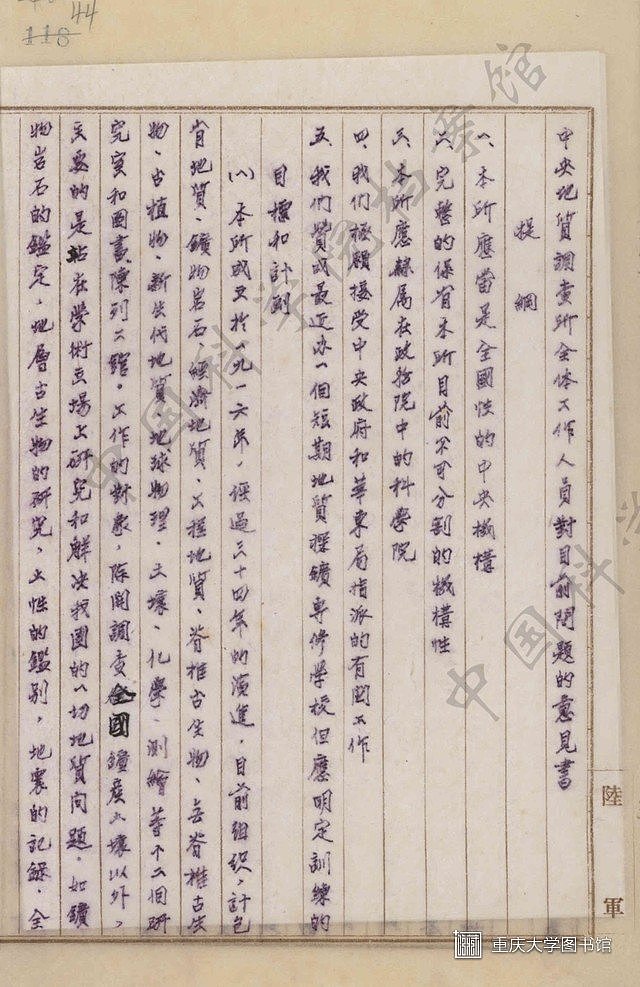 44
118
中央地質調查所全体工作人員對目前問題的意見書
提綱
一、本所應當是全國性的中央機構
二、完整的保有本所目前不可分割的機構性
三、本所應隸属在政務院中的科學院
四、我們極願接受中央政府和華東局指派的有関工作
五、我們贊成最近办一個短期地質探鑛專修學校但應明定訓練的
目標和計劃
(一)本所成立於一九一六年，經過三十四年的演進，目前組織，計包
肯地質、鑛物岩石，經濟地質、工程地質、脊椎古生物、无脊椎古生
物、古植物、新生代地質、地球物理、土壤、化學、測繪等十二個研
究室和圖書陳列二館。工作的對象，除開調查全國鑛產土壤以外，
主要的是站在學術立場上研究和解决我國的一切地質问題。如鑛
物岩石的鑑定，地層古生物的研究，土性的鑑别，地震的記錄，全
陸軍
中国科学院档案馆
中国科学
重庆大学图书馆